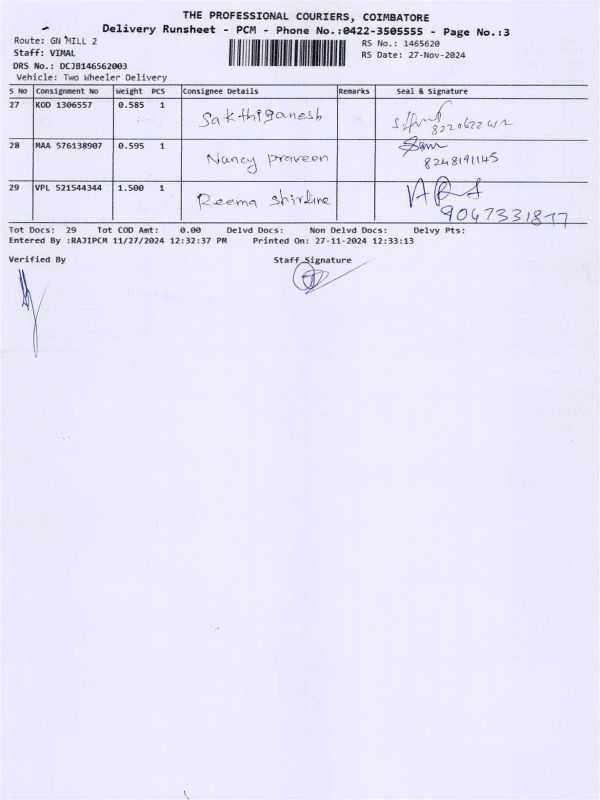 THE PROFESSIONAL COURIERS, COIMBATORE
Delivery Runsheet - PCM - Phone No.:0422-3505555 - Page No.:3
Route: GN MILL 2
RS No.: 1465620
Staff: VIMAL
RS Date: 27-Nov-2024
DRS No.: DCJB146562003
Vehicle: Two Wheeler Delivery
S No Consignment No Weight PCS Consignee Details Remarks Seal & Signature
27 KOD 1306557 0.585 1 Sakthiganesh
28 MAA 576138907 0.595 1 Nancy praveen Sam 8248191145
29 VPL 521544344 1.500 1 Reema 9047331877
Tot Docs: 29 Tot COD Amt: 0.00 Delvd Docs: Non Delvd Docs: Delvy Pts:
Entered By :RAJIPCM 11/27/2024 12:32:37 PM Printed On: 27-11-2024 12:33:13
Verified By Staff Signature